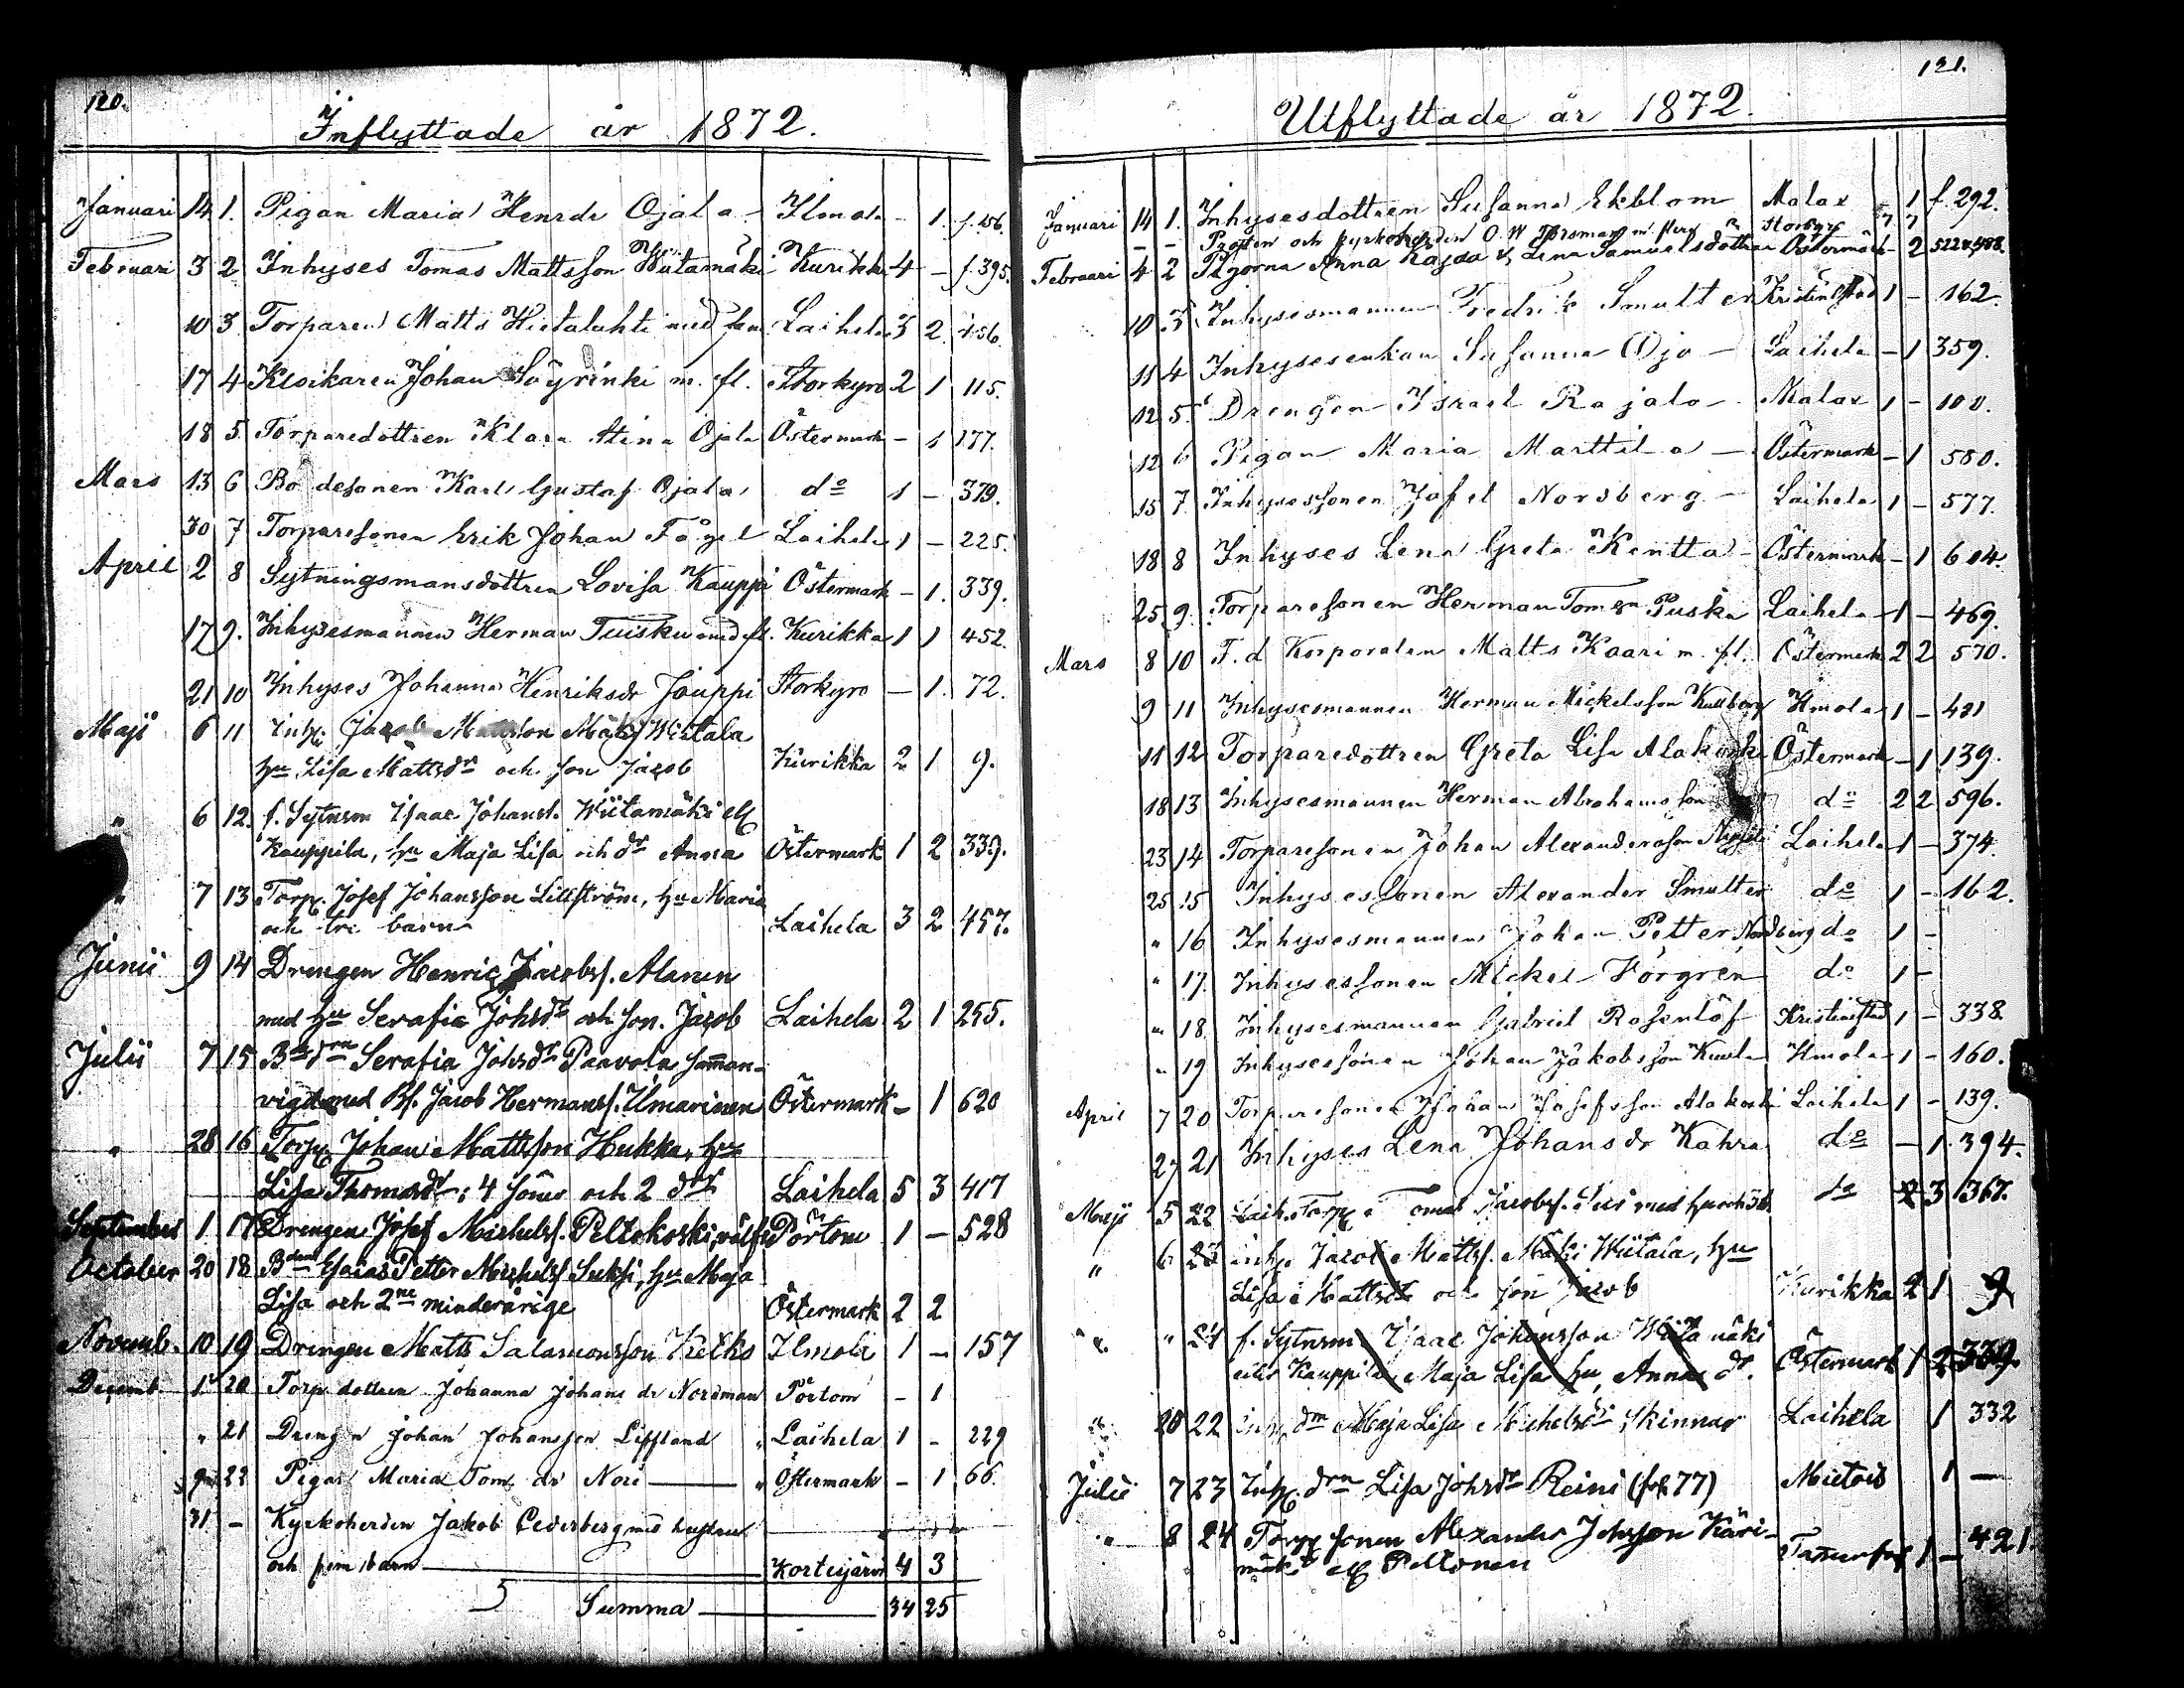 120.
Inflyttade år 1872.
Januari 14 1. Pigan Maria Henrdr Ojala - Ilmola - 1. f. 156.
Februari 3 2 Inhyses Tomas Mattsson Wiitamäki Kurikka 4 - f. 395.
10 3. Torparen Matts Hietalahti med fam Laihela 3 2. 156.
17 4 Johan Säyrinki m. fl. Storkyro 2 1 115.
18 5. Torparedottren Klara Stina Ojala Östermark - 1 177.
Mars 13 6 Karl Gustaf Ojala do 1 - 379.
30 7 Torparesonen Erik Johan Fågel Laihela 1 - 225.
April 2 8 Sytningsmansdottren Lovisa Kauppi Östermark - 1. 339.
17 9. Inhysesmannen Herman Tuisku med fl. Kurikka 1 1 452.
21 10 Inhyses Johanna Henriksdr Jouppi Storkyro - 1. 72.
Maji 6 11 Inh. Jacob Mattsson Mäki Wiitala
hu Lisa Mattsdr och son Jacob Kurikka 2 1 9.
" 6 12. f. Sytnsm Isaac Johanss. Wiitamäki ell
Kauppila, hu Maja Lisa och dr Anna Östermark 1 2 339.
" 7 13 Torp. Josef Johansson Lillström, hu Maria
och tre barn Laihela 3 2 457.
Junii 9 14 Drengen Henric Jacobss. Alanen
med hu Serafia Johsdr och son. Jacob Laihela 2 1 255.
Julii 7 15 Serafia Johsdr Paavola samman-
vigd med Bs. Jacob Hermanss. Ilmarinen Östermark - 1 620
" 28 16 Torp. Johan Mattsson Hukka, hu
Lisa Thomasdr; 4 söner och 2 drar Laihela 5 3 417
September 1 17 Drengen Josef Michelss. Peltokoski, Pörtom 1 - 528
October 20 18 Petter Michelss Suksi, hu Maja
Lisa och 2ne minderårige Östermark 2 2
Novemb. 10 19 Drengen Matts Salamonsson Ketko Ilmola 1 - 157
Decemb 1 20 Torp dottren Johanna Johans dr Nordman Pörtom - 1
" 21 Drengen Johan Johansson Liffland " Laihela 1 - 229
22 Pigan Maria Tom dr Nori " Östermark - 1 66.
31 - Kyrkoherden Jakob Cederberg med hustru
och fem barn Kortesjärvi 4 3
Summa 34 25
121.
Utflyttade år 1872.
Januari 14 1. Inhysesdottren Susanna Ekblom Malax 1 f. 292.
- - Prosten och kyrkoherden O. W. Forsman m. flera Storkyro 7 7
Februari 4 2 Pigorna Anna Kajsa & Lena Samuelsdöttrar Östermark - 2
10 3 Inhysesmannen Fredrik Smulter Kristinestad 1 - 162.
11 4 Inhysesenkan Susanna Oja - Laihela - 1 359.
12 5 Drengen Israel Rajala - Malax 1 - 100.
12 6 Pigan Maria Marttila - Östermark - 1 580.
15 7 Inhysessonen Josef Norsberg - Laihela 1 - 577.
18 8 Inhyses Lena Greta Kentta - Östermark - 1 604.
25 9. Torparesonen Herman Tomssn Puska Laihela 1 - 469.
Mars 8 10 F. d Korporalen Matts Kaari m. fl. Östermark 2 2 570.
9 11 Inhysesmannen Herman Mickelsson Kullberg Ilmola 1 - 421
11 12 Torparedottren Greta Lisa Alakoski Östermark - 1 139.
18 13 Inhysesmannen Herman Abrahamsson do 2 2 596.
23 14 Torparesonen Johan Alexandersson Laihela 1 - 374.
25 15 Inhysessonen Alexander Smulter do 1 - 162.
" 16 Inhysesmannen Johan Petter Nordberg do 1 -
" 17. Inhysessonen Mickel Förgren do 1 -
" 18. Inhysesmannen Gabriel Rosenlöf Kristinestad 1 - 338.
" 19 Inhysessonen Johan Jakobsson Ilmola 1 - 160.
April 7 20 Torparesonen Johan Josefsson Alakoski Laihela 1 - 139.
27 21 Inhyses Lena Johansdr Kahra do - 1 394.
Maji 5 22 Jacobss. med hu och do 2 3 367.
" 6 23 inhy Jacob Mattss. Mäki Wiitala, hu
Lisa Mattsdr och son Jacob Kurikka 2 1 9
" " 24 f. Sytnsm Isaac Johansson Wiitamäki
eller Kauppila, Maja Lisa hu, Anna dr. Östermark 1 2 339.
" 20 22 inh. drn Maja Lisa Michelsdr Skinnar Laihela 1 332
Julii 7 23 Inh. drn Lisa Johsdr Reini (fol 77) Mietois 1 -
" 8 24 Torp sonen Alexander Johsson Käri-
mäki ell Peltonen Tammerfors 1 - 421.